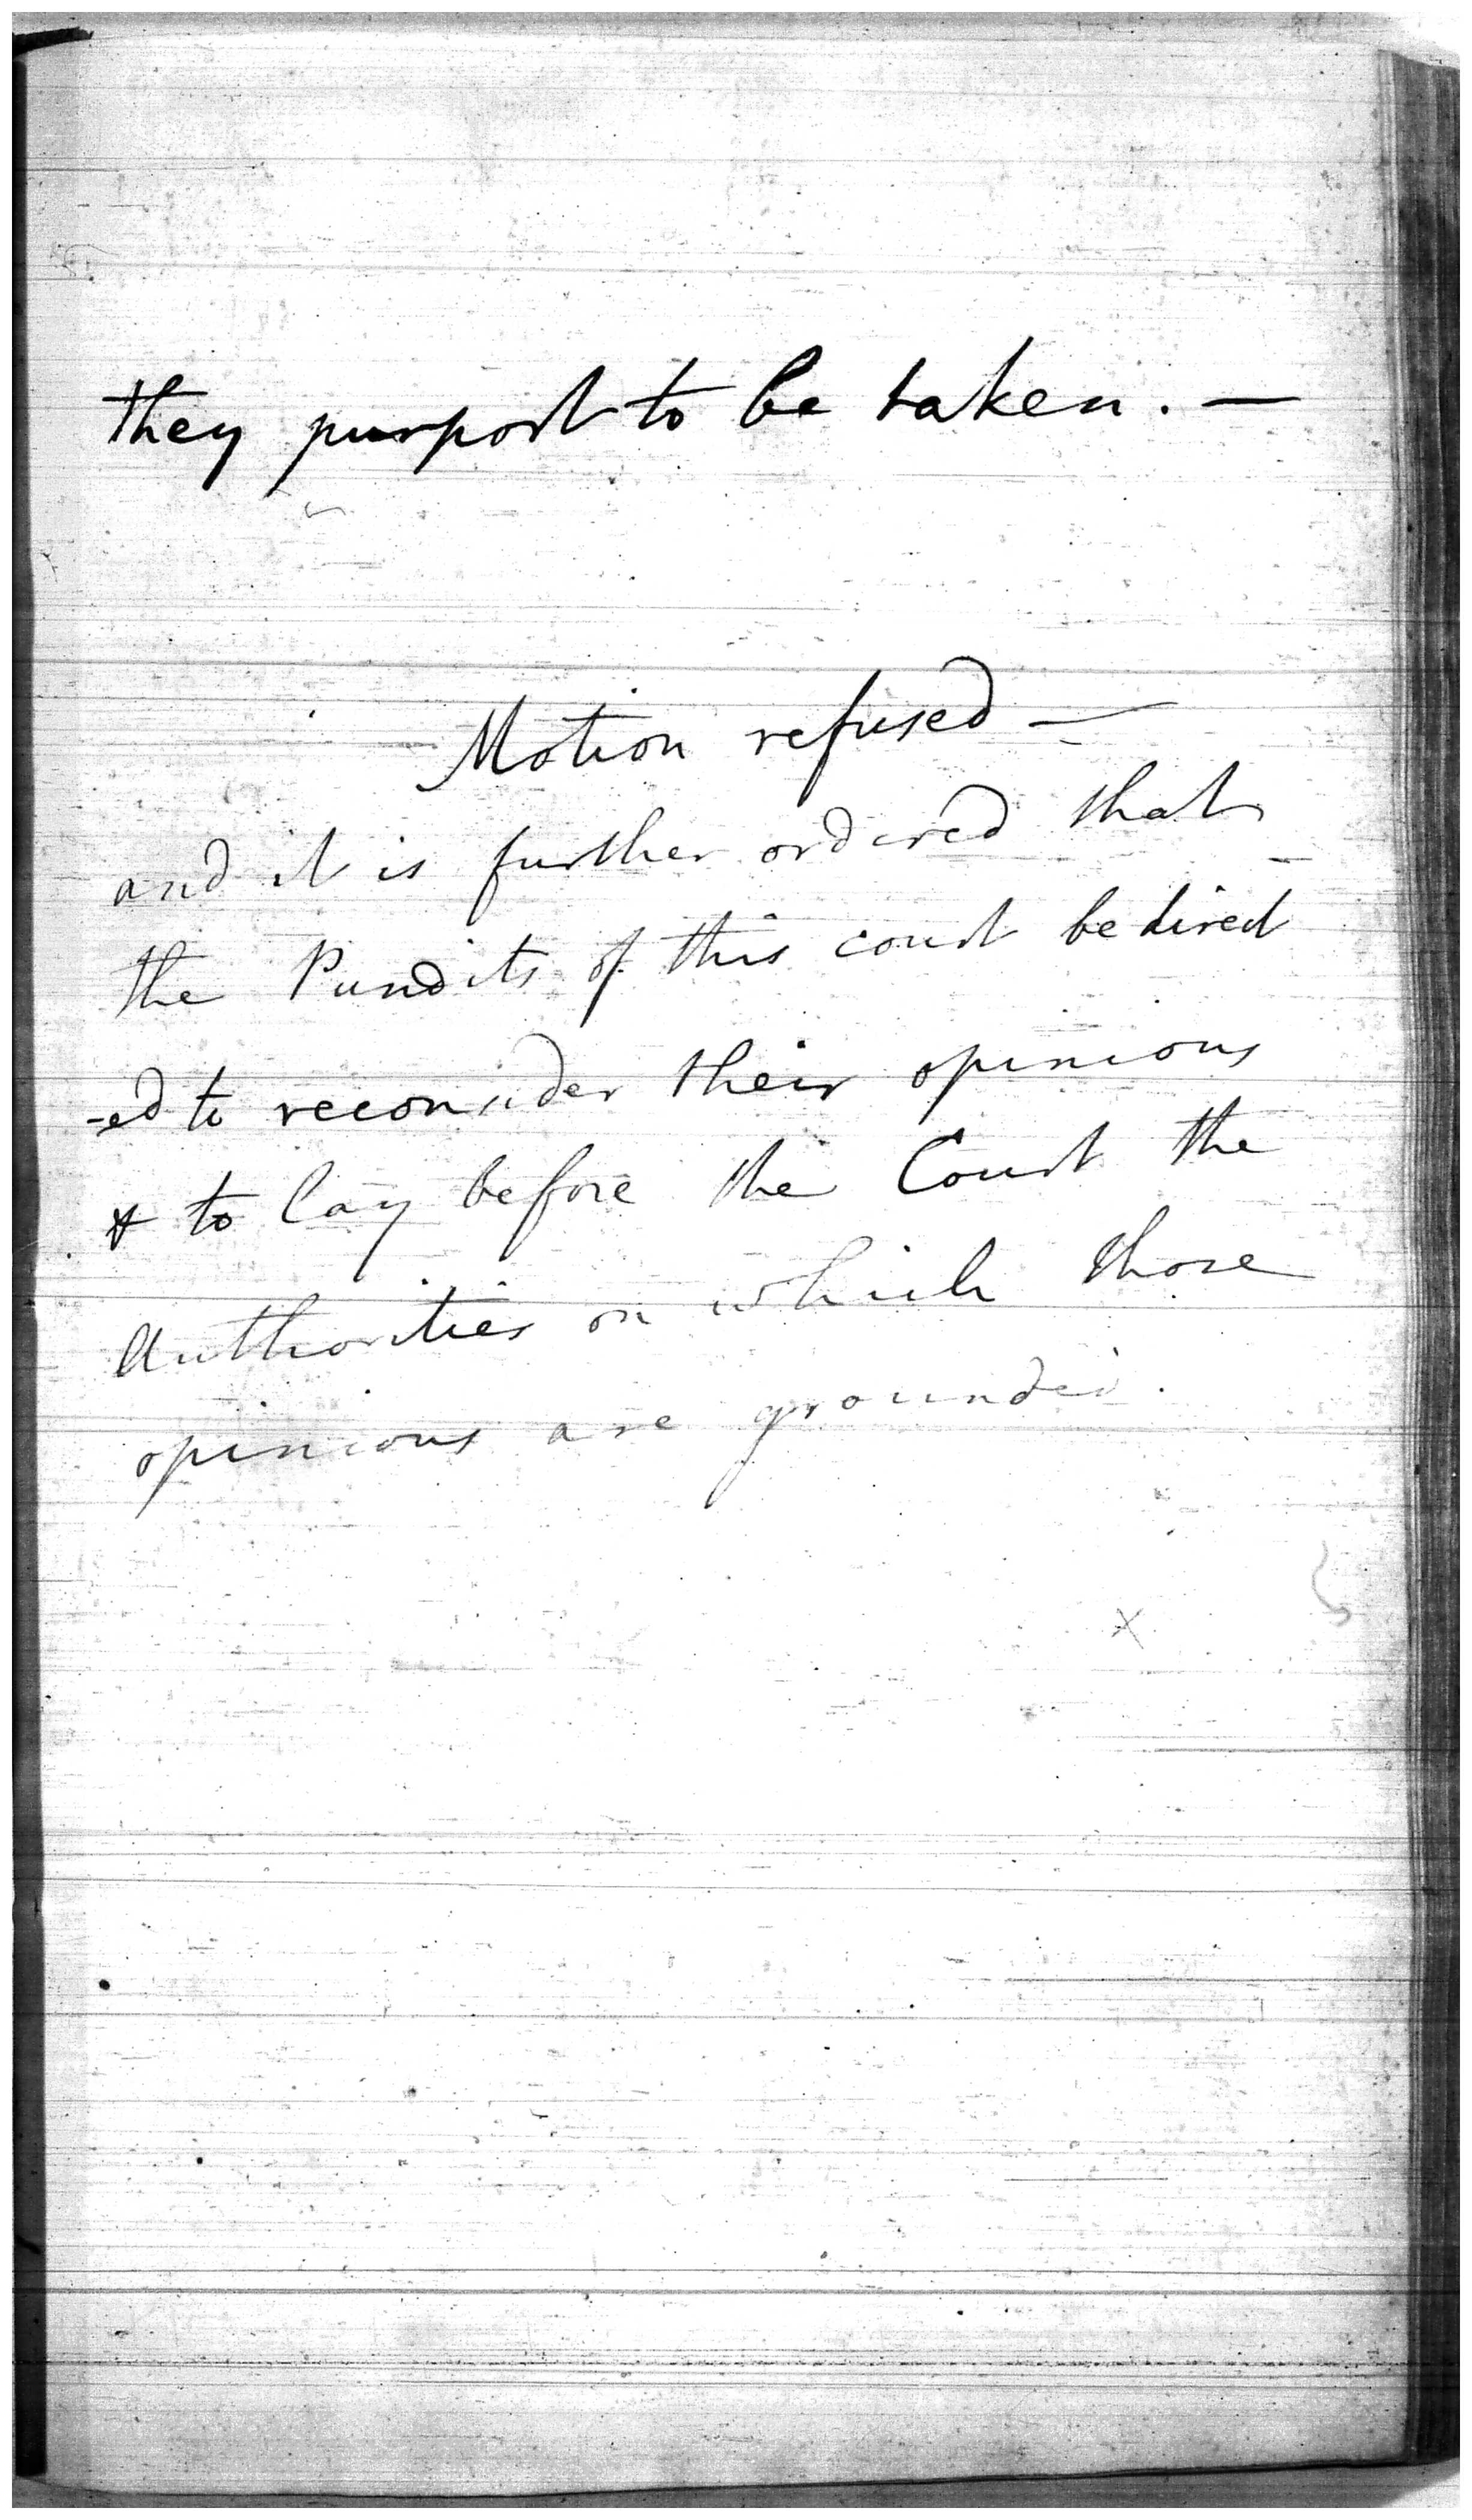 they purport to be taken. —
Motion refused —
and it is further ordered that
the Pundits of this court be direct
-ed to reconsider their opinions
& to lay before the Court the
Authorities on which those
opinions are grounded.